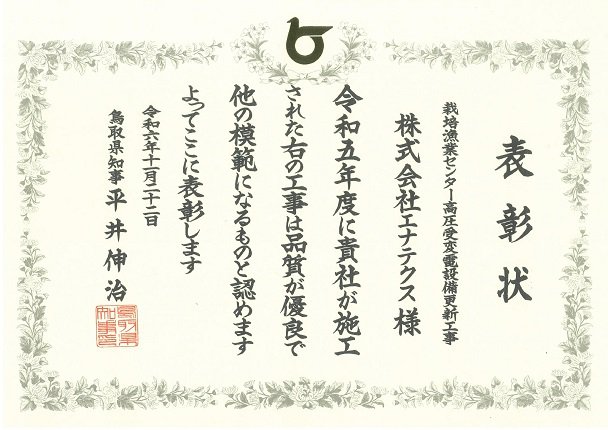 表彰状
栽培漁業センター高圧受変電設備更新工事
株式会社エナテクス 様
令和五年度に貴社が施工
された右の工事は品質が優良で
他の模範になるものと認めます
よってここに表彰します
令和六年十一月二十二日
鳥取県知事 平井伸治